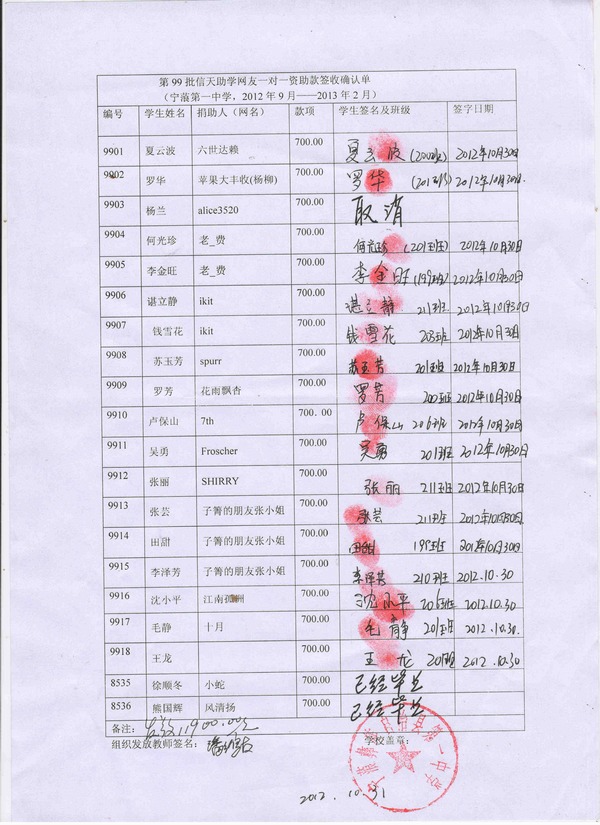 第99批信天助学网友一对一资助款签收确认单
（宁蒗第一中学，2012年9月——2013年2月）
编号 学生姓名 捐助人（网名） 款项 学生签名及班级 签字日期
9901 夏云波 六世达赖 700.00 夏云波 (200班) 2012年10月30日
9902 罗华 苹果大丰收(杨柳) 700.00 罗华 (201班) 2012年10月30日.
9903 杨兰 alice3520 700.00 取消
9904 何光珍 老_费 700.00 何光珍 (201班) 2012年10月30日
9905 李金旺 老_费 700.00 李金旺 (199班) 2012年10月30日
9906 谌立静 ikit 700.00 谌立静 211班 2012年10月30日
9907 钱雪花 ikit 700.00 钱雪花 203班 2012年10月30日
9908 苏玉芳 spurr 700.00 苏玉芳 201班 2012年10月30日
9909 罗芳 花雨飘杏 700.00 罗芳 200班 2012年10月30日
9910 卢保山 7th 700.00 卢保山 206班 2012年10月30日
9911 吴勇 Froscher 700.00 吴勇 201班 2012年10月30日
9912 张丽 SHIRRY 700.00 张丽 211班 2012年10月30日
9913 张芸 子箐的朋友张小姐 700.00 张芸 211班 2012年10月30日
9914 田甜 子箐的朋友张小姐 700.00 田甜 198班 2012年10月30日
9915 李泽芳 子箐的朋友张小姐 700.00 李泽芳 210班 2012.10.30
9916 沈小平 江南孤洲 700.00 沈小平 206班 2012.10.30
9917 毛静 十月 700.00 毛静 201班 2012.10.30.
9918 王龙 700.00 王龙 201班 2012.10.30
8535 徐顺冬 小蛇 700.00 已经毕业
8536 熊国辉 风清扬 700.00 已经毕业
备注： 11900.00元
组织发放教师签名： 学校盖章：
第一中学
2012.10.31